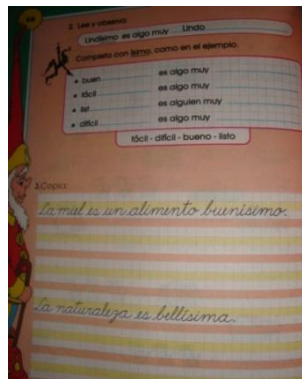 68
2. Lee y observa:
Lindísimo es algo muy Lindo
Completa con ísimo, como en el ejemplo.
• buen es algo muy
• fácil es algo muy
• list es alguien muy
• difícil es algo muy
fácil - difícil - bueno - listo
3. Copia:
La miel es un alimento buenísimo.
La naturaleza es bellísima.